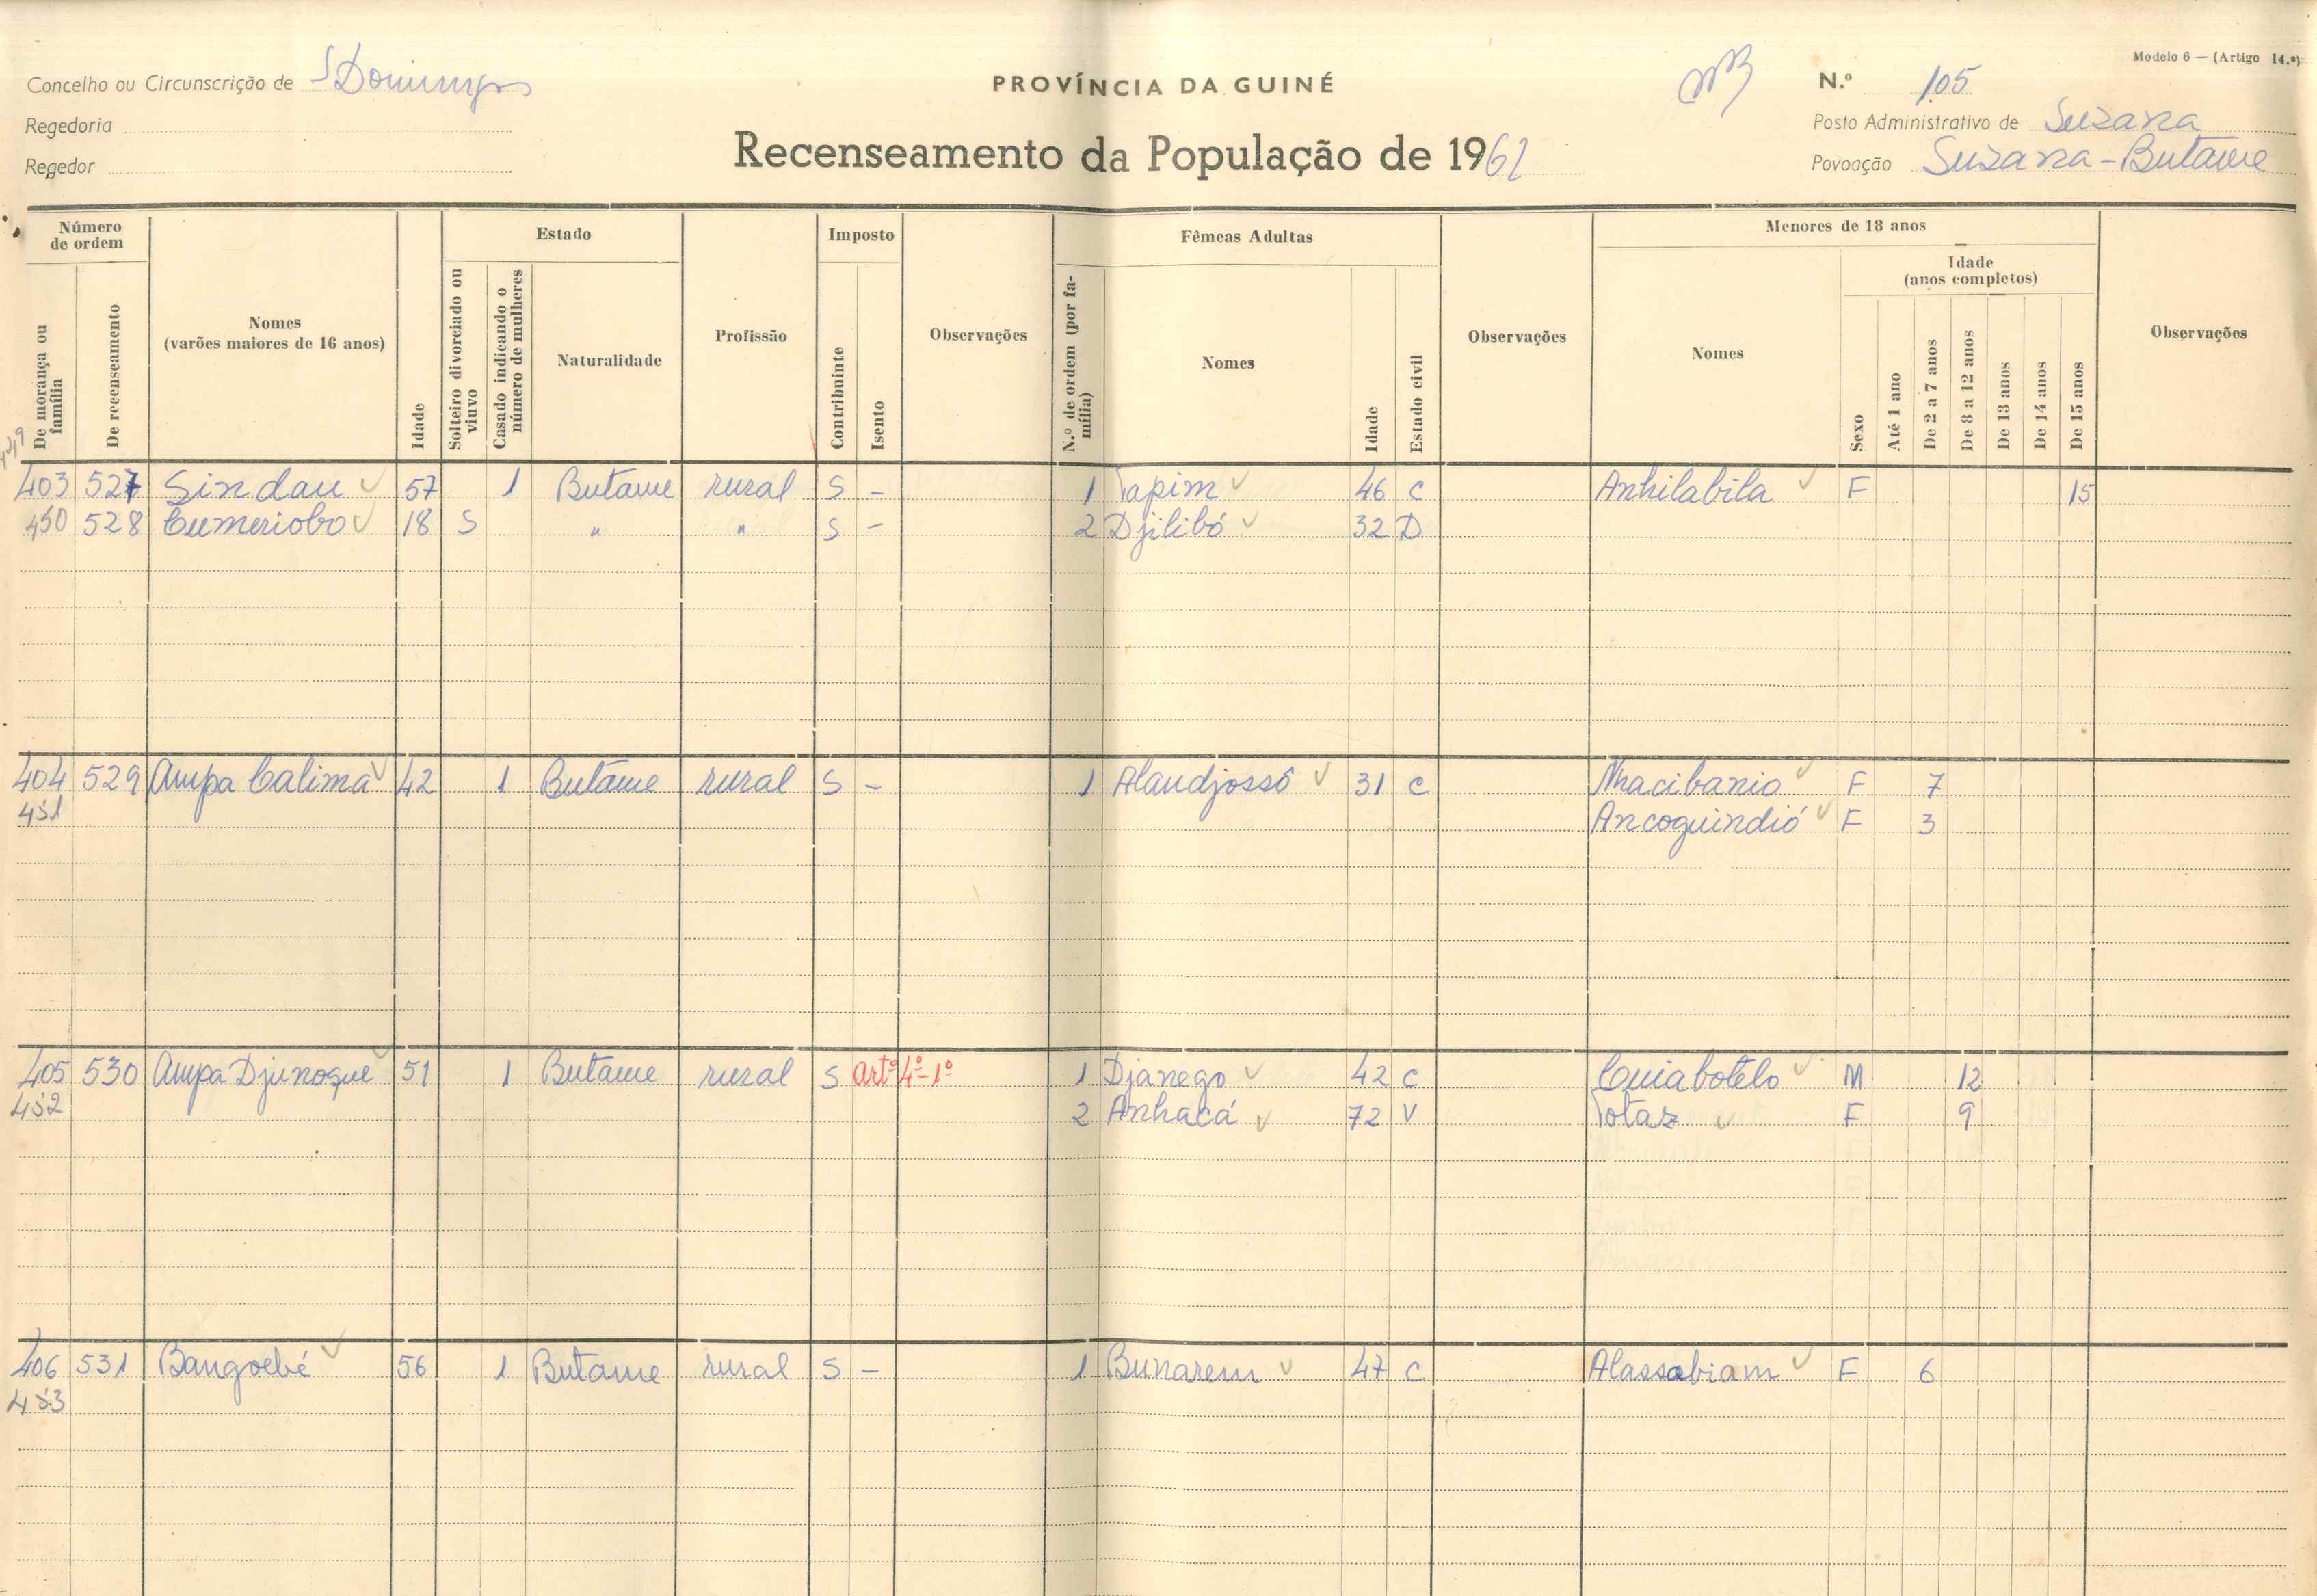 Modelo 6 — (Artigo 14.º)
Concelho ou Circunscrição de S Domingos
PROVÍNCIA DA GUINÉ
N.º 105
Regedoria
Posto Administrativo de Suzana
Regedor
Recenseamento da População de 1962
Povoação Suzana-Butame
Número de ordem
De morança ou família
De recenseamento
Nomes (varões maiores de 16 anos)
Idade
Estado
Solteiro divorciado ou viuvo
Casado indicando o número de mulheres
Naturalidade
Profissão
Imposto
Contribuinte
Isento
Observações
Fêmeas Adultas
N.º de ordem (por família)
Nomes
Idade
Estado civil
Observações
Menores de 18 anos
Nomes
Sexo
Idade (anos completos)
Até 1 ano
De 2 a 7 anos
De 8 a 12 anos
De 13 anos
De 14 anos
De 15 anos
Observações
449
403 527 Sindau 57 1 Butame rural S - 1 Tapim 46 C Anhilabila F 15
450 528 Cumeriobo 18 S " " S - 2 Djilibó 32 D
404 529 Ampa Calima 42 1 Butame rural S - 1 Alandjossô 31 C Nhacibanio F 7
451 Ancoguindió F 3
405 530 Ampa Djunogue 51 1 Butame rural S artº 4º-1º 1 Djanego 42 C Cuiabotelo M 12
452 2 Anhacá 72 V Totaz F 9
406 531 Bangoebé 56 1 Butame rural S - 1 Bunarem 47 C Alassabiam F 6
453